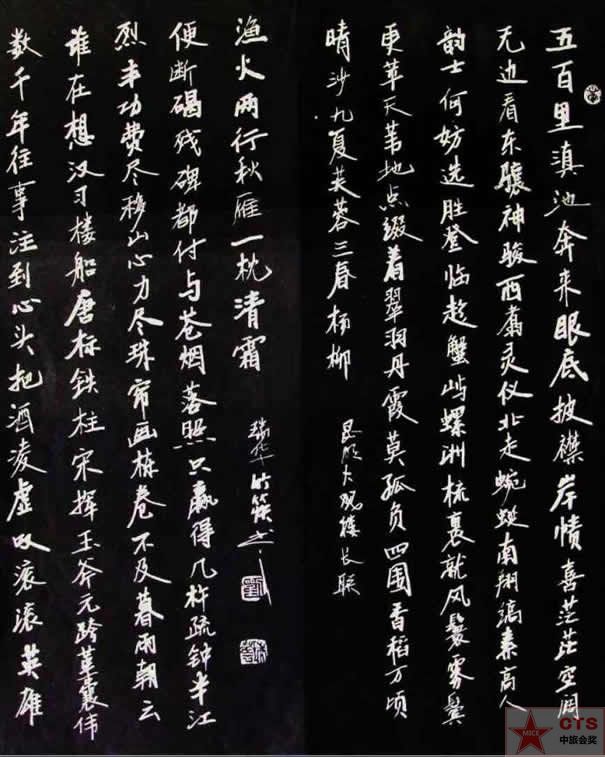 五百里滇池奔来眼底披襟岸帻喜茫茫空阔
无边看东骧神骏西翥灵仪北走蜿蜒南翔缟素高人
韵士何妨选胜登临趁蟹屿螺洲梳裹就风鬟雾鬓
更苹天苇地点缀着翠羽丹霞莫孤负四围香稻万顷
晴沙九夏芙蓉三春杨柳
昆明大观楼长联
数千年往事注到心头把酒凌虚叹滚滚英雄
谁在想汉习楼船唐标铁柱宋挥玉斧元跨革囊伟
烈丰功费尽移山心力尽珠帘画栋卷不及暮雨朝云
便断碣残碑都付与苍烟落照只赢得几杵疏钟半江
渔火两行秋雁一枕清霜
CTS
MICE
中旅会奖